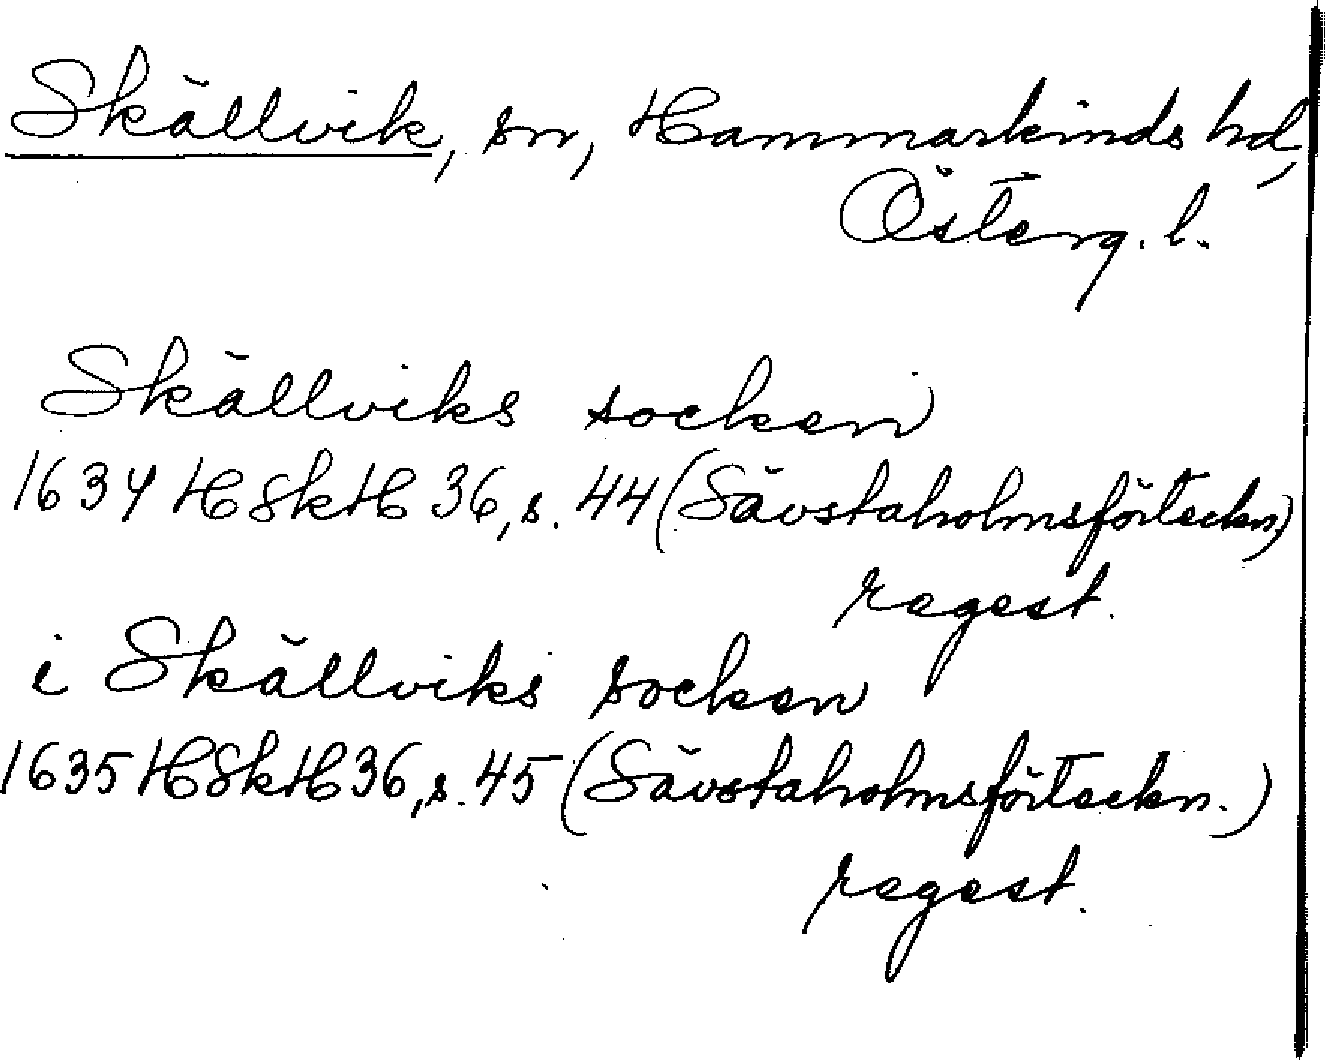 Skällvik, sn, Hammarkinds hd,
Österg. l.
Skällviks socken
1634 HSkH 36, s. 44 (Sävstaholmsförteckn.)
regest.
i Skällviks socken
1635 HSkH 36, s. 45 (Sävstaholmsförteckn.)
regest.